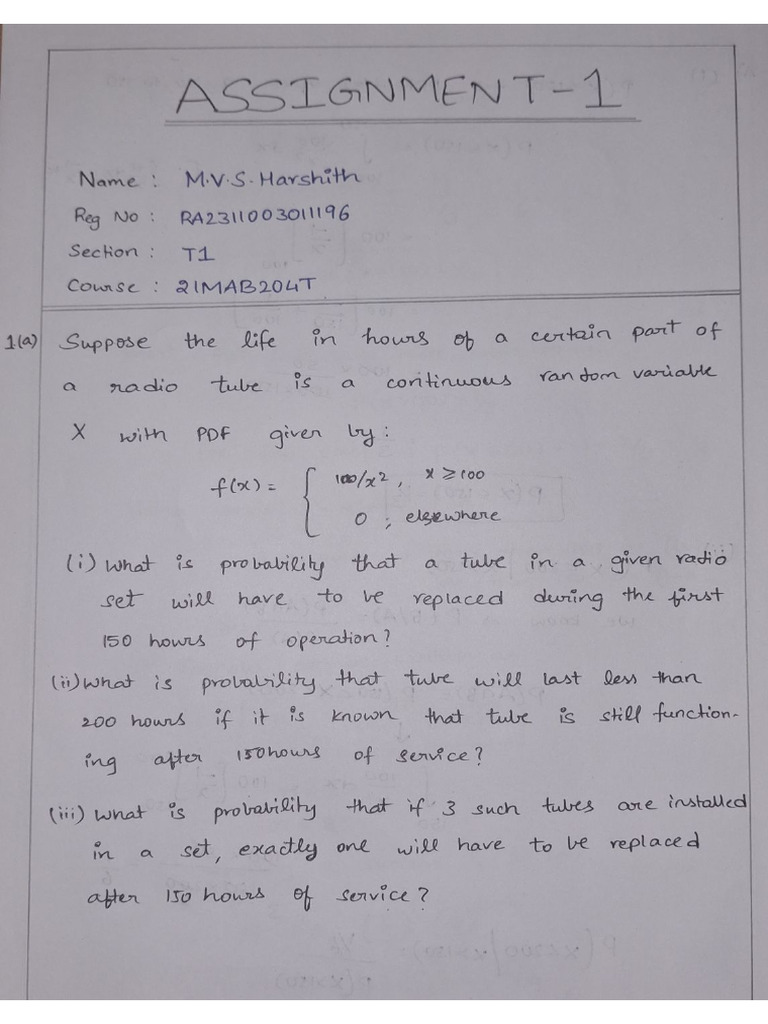 ASSIGNMENT-1
Name : M.V.S. Harshith
Reg No : RA2311003011196
Section : T1
Course : 21MAB204T
1(a) Suppose the life in hours of a certain part of
a radio tube is a continuous random variable
X with PDF given by:
f(x) = { 100/x², x ≥ 100
0 ; elsewhere
(i) What is probability that a tube in a given radio
set will have to be replaced during the first
150 hours of operation?
(ii) What is probability that tube will last less than
200 hours if it is known that tube is still function-
ing after 150 hours of service?
(iii) What is probability that if 3 such tubes are installed
in a set, exactly one will have to be replaced
after 150 hours of service?